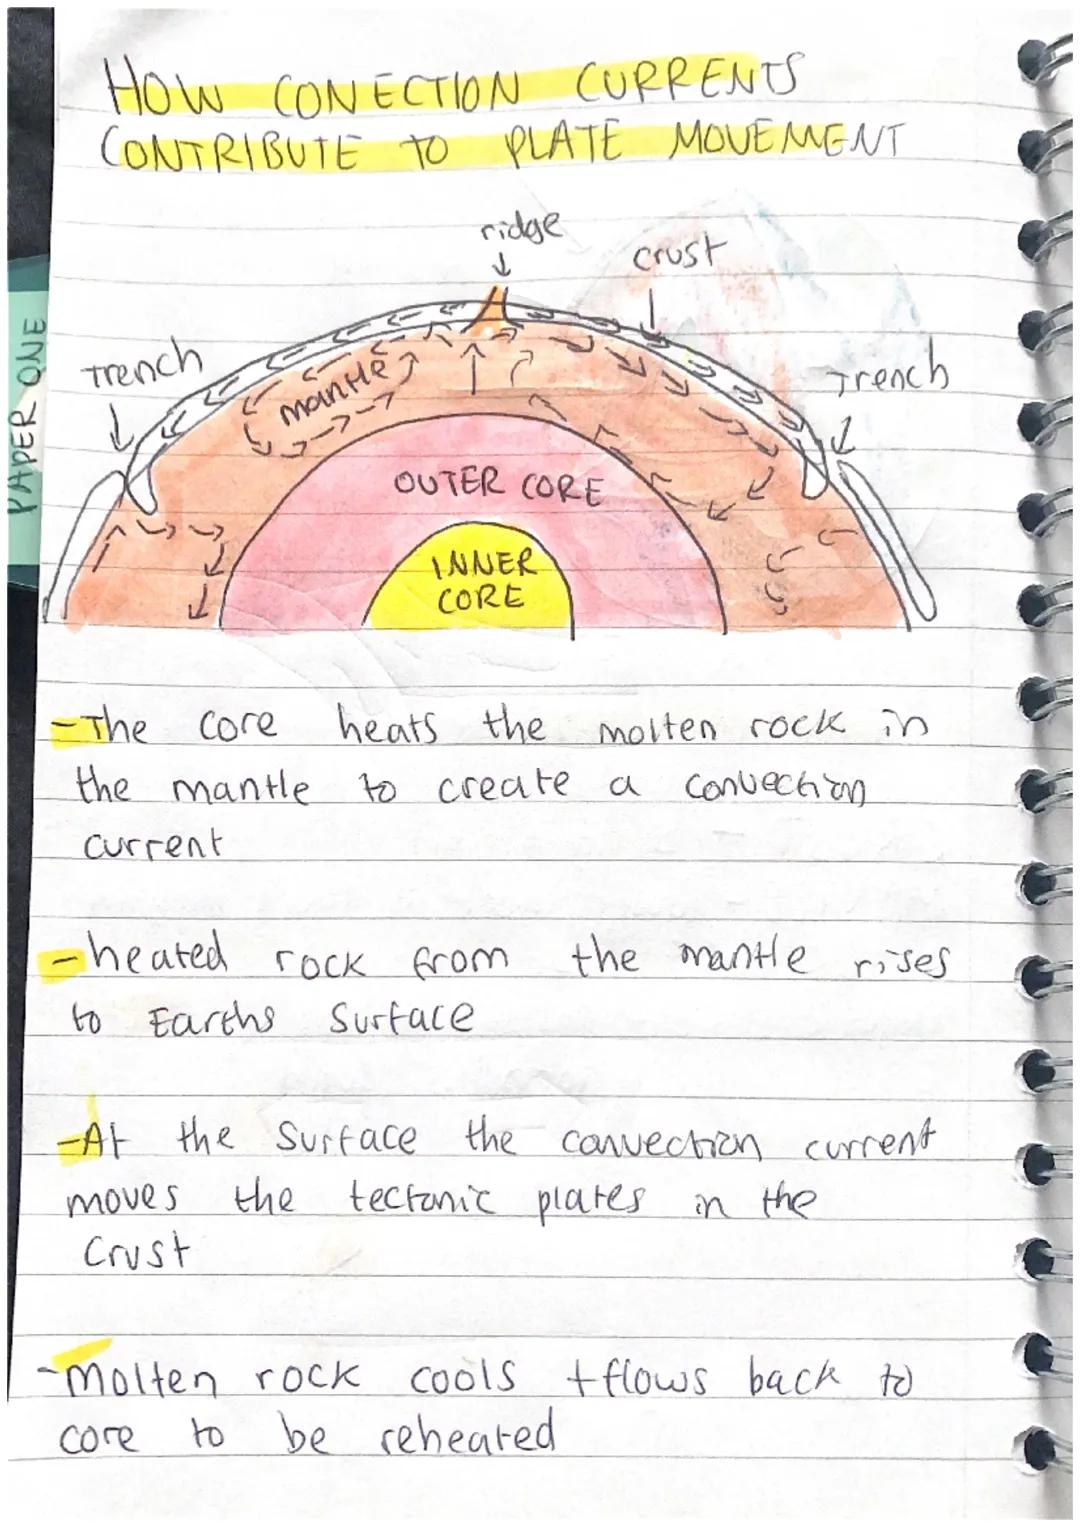 HOW CONECTION CURRENTS
CONTRIBUTE TO PLATE MOVEMENT
ridge
crust
Trench
mantle
Trench
PAPER ONE
OUTER CORE
INNER
CORE
- The core heats the molten rock in
the mantle to create a convection
current
- heated rock from the mantle rises
to Earths surface
- At the surface the convection current
moves the tectonic plates in the
crust
- Molten rock cools + flows back to
core to be reheated